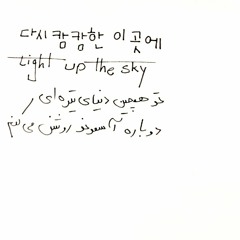 다시 캄캄한 이 곳에
Light up the sky
تو همچین دنیای تیره ای
دوباره آسمونو روشن می کنم